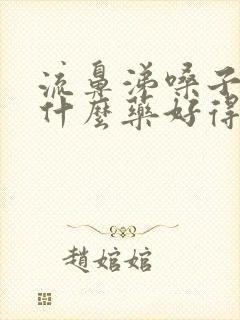 流鼻涕嗓子
什麼藥好得
趙婠婠